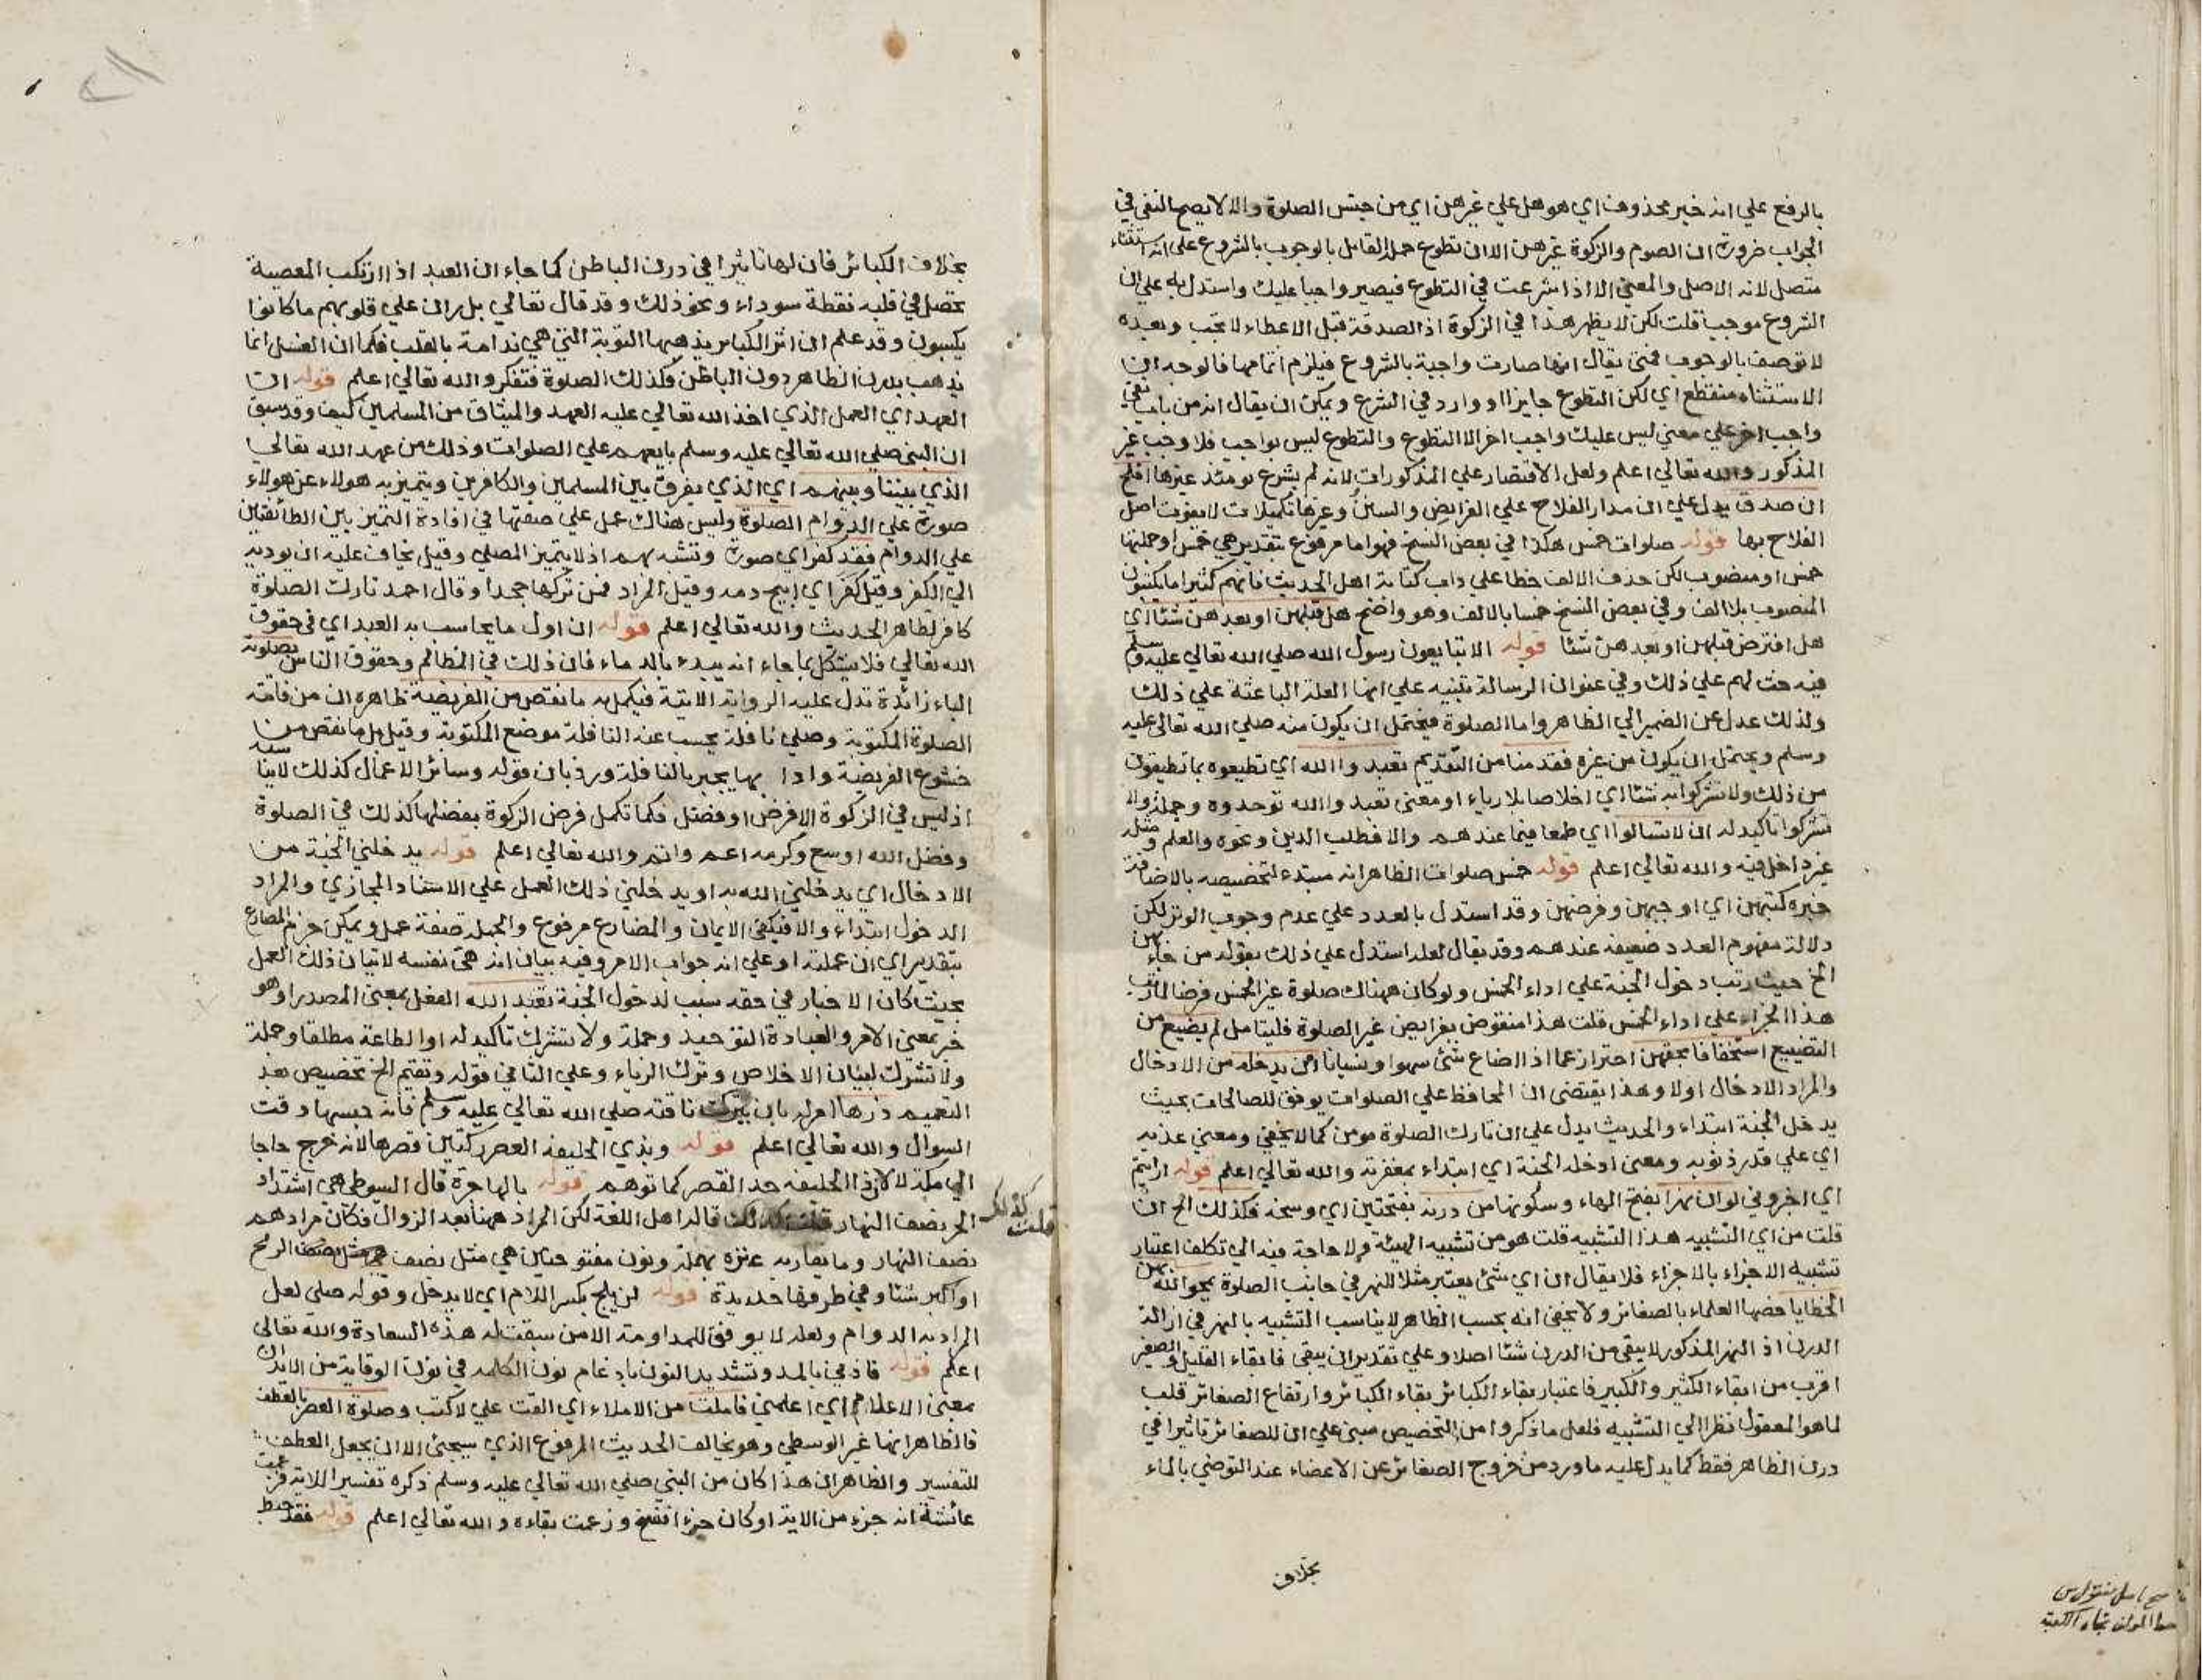 بالرفع علي انه خبر محذوف اي هو هل علي غيرهن اي من جنس الصلوة والا لا يصح النفي في
الجواب ضرورة ان الصوم والزكوة غيرهن الا ان تطوع حمله القايل بالوجوب بالشروع علي انه استثناء
متصل لانه الاصل والمعني الا اذا شرعت في التطوع فيصير واجبا عليك واستدل به علي ان
الشروع موجب قلت لكن لا يظهر هذا في الزكوة اذ الصدقة قبل الاعطاء لا تجب وبعده
لا توصف بالوجوب فمتي يقال انها صارت واجبة بالشروع فيلزم اتمامها فالوجه ان
الاستثناء منقطع اي لكن التطوع جايز او وارد في الشرع ويمكن ان يقال انه من باب نفي
واجب اخر علي معني ليس عليك واجب اخر الا التطوع والتطوع ليس بواجب فلا وجب غير
المذكور والله تعالي اعلم ولعل الاقتصار علي المذكورات لانه لم يشرع يومئذ غيرها افلح
ان صدق يدل علي ان مدار الفلاح علي الفرايض والسنن وغيرها تكميلات لا يفوت اصل
الفلاح بها قوله صلوات خمس هكذا في بعض النسخ فهو اما مرفوع بتقدير هي خمس او جملتها
خمس او منصوب لكن حذف الالف خطا علي داب كتابة اهل الحديث فانهم كثيرا ما يكتبون
المنصوب بلا الف وفي بعض النسخ خمسا بالالف وهو واضح هل قبلهن او بعدهن شئا اي
هل افترض قبلهن او بعدهن شئا قوله الا تبايعون رسول الله صلي الله تعالي عليه وسلم
فيه حث لهم علي ذلك وفي عنوان الرسالة تنبيه علي انها العلة الباعثة علي ذلك
ولذلك عدل عن الضمير الي الظاهر واما الصلوة فيحتمل ان يكون منه صلي الله تعالي عليه
وسلم ويحتمل ان يكون من غيره فقدمنا من التقديم تعبدوا الله اي تطيعوه بما تطيقون
من ذلك ولا تشركوا به شئا اي اخلاصا بلا رياء او معني تعبدوا الله توحدوه وجملة ولا
تشركوا تاكيد له ان لا تسالوا اي طمعا فيما عندهم والا فطلب الدين ونحوه والعلم ومثله
غير داخل فيه والله تعالي اعلم قوله خمس صلوات الظاهر انه مبتدء لتخصيصه بالاضافة
خبره كتبهن اي اوجبهن وفرضهن وقد استدل بالعدد علي عدم وجوب الوتر لكن
دلالة مفهوم العدد ضعيفه عندهم وقد يقال لعله استدل علي ذلك بقوله من جاء بهن
الخ حيث رتب دخول الجنة علي اداء الخمس ولو كان هناك صلوة غير الخمس فرضا لما رتب
هذا الجزاء علي اداء الخمس قلت هذا منقوض بفرايض غير الصلوة فليتامل لم يضيع من
التضييع استخفافا بحقهن احتراز عما اذا ضاع شئ سهوا ونسيانا ان يدخله من الادخال
والمراد الادخال اولا وهذا يقتضي ان المحافظ علي الصلوات يوفق للصالحات بحيث
يدخل الجنة ابتداء والحديث يدل علي ان تارك الصلوة مومن كما لا يخفي ومعني عذبه
اي علي قدر ذنوبه ومعني ادخله الجنة اي ابتداء بمغفرته والله تعالي اعلم قوله ارايتم
اي اخبروني لو ان نهرا بفتح الهاء وسكونها من درنه بفتحتين اي وسخه فكذلك الخ ان
قلت من اي التشبيه هذا التشبيه قلت هو من تشبيه الهيئة ولا حاجة فيه الي تكلف اعتبار
تشبيه الاجزاء بالاجزاء فلا يقال ان اي شئ يعتبر مثلا للنهر في جانب الصلوة يمحو الله بهن
الخطايا خصها العلماء بالصغائر ولا يخفي انه بحسب الظاهر لا يناسب التشبيه بالنهر في ازالة
الدرن اذ النهر المذكور لا يبقي من الدرن شئا اصلا وعلي تقدير ان يبقي فابقاء القليل والصغير
اقرب من ابقاء الكثير والكبير فاعتبار بقاء الكبائر وارتفاع الصغائر قلب
لما هو المعقول نظرا الي التشبيه فلعل ما ذكروا من التخصيص مبني علي ان للصغائر تاثيرا في
درن الظاهر فقط كما يدل عليه ما ورد من خروج الصغائر عن الاعضاء عند التوضي بالماء
بخلاف
بخلاف الكبائر فان لها تاثيرا في درن الباطن كما جاء ان العبد اذا ارتكب المعصية
تحصل في قلبه نقطة سوداء ونحو ذلك وقد قال تعالي بل ران علي قلوبهم ما كانوا
يكسبون وقد علم ان اثر الكبائر يذهبها التوبة التي هي ندامة بالقلب فكما ان الغسل انما
يذهب بدرن الظاهر دون الباطن فكذلك الصلوة فتفكر والله تعالي اعلم قوله ان
العهد اي العمل الذي اخذ الله تعالي عليه العهد والميثاق من المسلمين كيف وقد سبق
ان النبي صلي الله تعالي عليه وسلم بايعهم علي الصلوات وذلك من عهد الله تعالي
الذي بيننا وبينهم اي الذي يفرق بين المسلمين والكافرين ويتميز به هولاء عن هولاء
صورة علي الدوام الصلوة وليس هناك عمل علي صفتها في افادة التميز بين الطائفتين
علي الدوام فقد كفر اي صورة وتشبه بهم اذ لا يتميز المصلي وقيل يخاف عليه ان يوديه
الي الكفر وقيل كفر اي ابيح دمه وقيل المراد فمن تركها جحدا وقال احمد تارك الصلوة
كافر لظاهر الحديث والله تعالي اعلم قوله ان اول ما يحاسب به العبد اي في حقوق
الله تعالي فلا يشكل بما جاء انه يبدء بالدماء فان ذلك في المظالم وحقوق الناس بصلوته
الباء زائدة تدل عليه الرواية الاتية فيكمل به ما نقص من الفريضة ظاهره ان من فاتته
الصلوة المكتوبة وصلي نافلة يحسب عنه النافلة موضع المكتوبة وقيل بل ما نقص من
خشوع الفريضة وادابها يجبر بالنافلة ورد بان قوله وسائر الاعمال كذلك لا يناسبه
اذ ليس في الزكوة الا فرض او فضل فكما تكمل فرض الزكوة بفضلها كذلك في الصلوة
وفضل الله اوسع وكرمه اعم واتم والله تعالي اعلم قوله يدخلني الجنة من
الادخال اي يدخلني الله به او يدخلني ذلك العمل علي الاسناد المجازي والمراد
الدخول ابتداء والا فيكفي الايمان والمضارع مرفوع والجملة صفة عمل ويمكن جزم المضارع
بتقدير اي ان عملته او علي انه جواب الامر وفيه بيان انه هيء نفسه لاتيان ذلك العمل
بحيث كان الاخبار في حقه سبب لدخول الجنة تعبد الله الفعل بمعني المصدر او هو
خبر بمعني الامر والعبادة التوحيد وجملة ولا تشرك تاكيد له او الطاعة مطلقا وجملة
ولا تشرك لبيان الاخلاص وترك الرياء وعلي الثاني قوله وتقيم الخ تخصيص بعد
التعميم ذرها امر له بان يترك ناقته صلي الله تعالي عليه وسلم فانه حبسها وقت
السوال والله تعالي اعلم قوله وبذي الحليفه العصر ركعتين قصرها لانه خرج حاجا
الي مكة لا لان ذا الحليفه حد القصر كما توهم قوله بالهاجرة قال السيوطي هي اشتداد
الحر نصف النهار قلت كذلك قاله اهل اللغة لكن المراد ههنا بعد الزوال فكان مرادهم
قلت كذلك
نصف النهار وما يقاربه عنزه بمهملة ونون مفتوحتان هي مثل نصف الرمح
او اكبر شئا وفي طرفها حديدة قوله لن يلج بكسر اللام اي لا يدخل وقوله صلي لعل
المراد به الدوام ولعله لا يوفق للمداومة الا من سبقت له هذه السعادة والله تعالي
اعلم قوله فاذني بالمد وتشديد النون بادغام نون الكلمه في نون الوقاية من الايذان
بمعني الاعلام اي اعلمني فاملت من الاملاء اي القت علي لاكتب وصلوة العصر بالعطف
فالظاهر انها غير الوسطي وهو يخالف الحديث المرفوع الذي سيجئ الا ان يجعل العطف
للتفسير والظاهر ان هذا كان من النبي صلي الله تعالي عليه وسلم ذكره تفسيرا للاية فزعمت
عائشة انه جزء من الاية او كان جزءا فنسخ وزعمت بقاءه والله تعالي اعلم قوله فقد حبط